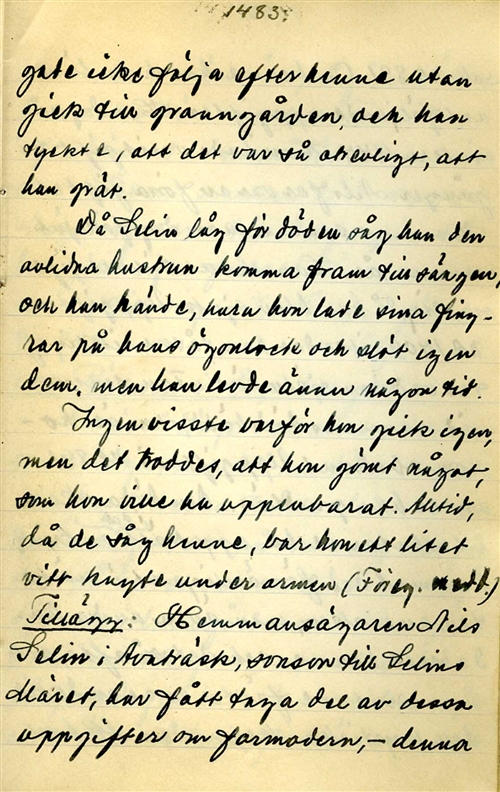 1483.
gade icke följa efter henne utan
gick till granngården, och han
tyckte, att det var så otrevligt, att
han grät.
Då Selin låg för döden såg han den
avlidna hustrun komma fram till sängen,
och han kände, huru hon lade sina fing-
rar på hans ögonlock och slöt igen
dem, men han levde ännu någon tid.
Ingen visste varför hon gick igen,
men det troddes, att hon gömt något,
som hon ville ha uppenbarat. Alltid,
då de såg henne, bar hon ett litet
vitt knyte under armen (Föreg. medd.)
Tillägg: Hemmansägaren Nils
Selin i Avaträsk, sonson till Selins
Märet, har fått taga del av dessa
uppgifter om farmodern, – denna